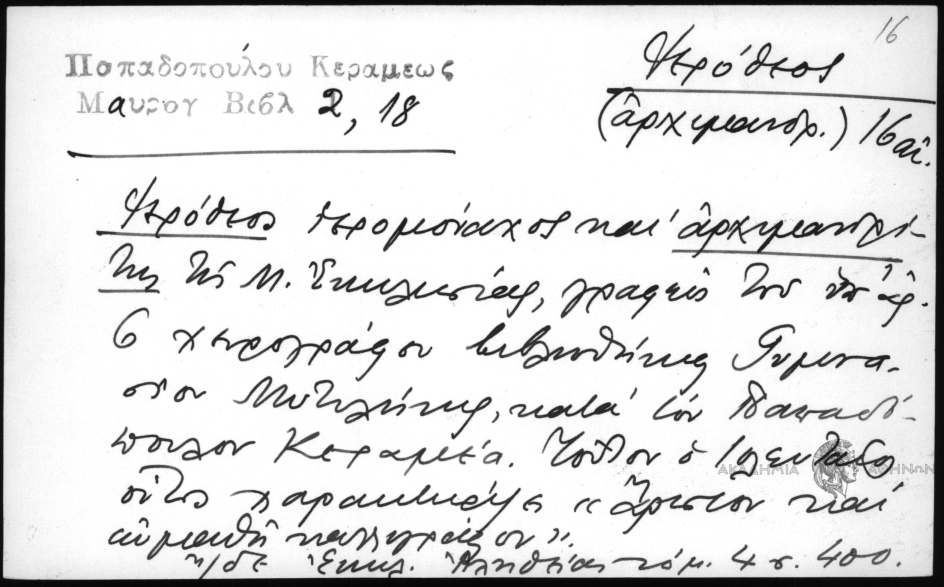 16
Παπαδοπούλου Κεραμεως
Μαυρογ Βιβλ 2, 18
Ἱερόθεος
(ἀρχιμανδρ.) 16 αἰ.
Ἱερόθεος ἱερομόναχος καί ἀρχιμανδρί-
της τῆς Μ. Ἐκκλησίας, γραφεύς τοῦ ὑπ' ἀρ.
6 χειρογράφου βιβλιοθήκης Γυμνα-
σίου Μυτιλήνης, κατά τόν Παπαδό-
πουλον Κεραμέα. Ὅθεν ὁ
οὗτος χαρακτηρίζει «ἄριστον καί
εὐμαθῆ καλλιγράφον».
Ἐκκλ. Ἀληθείας τόμ. 4 σ. 400.
ΑΚΑΔΗΜΙΑ ΑΘΗΝΩΝ